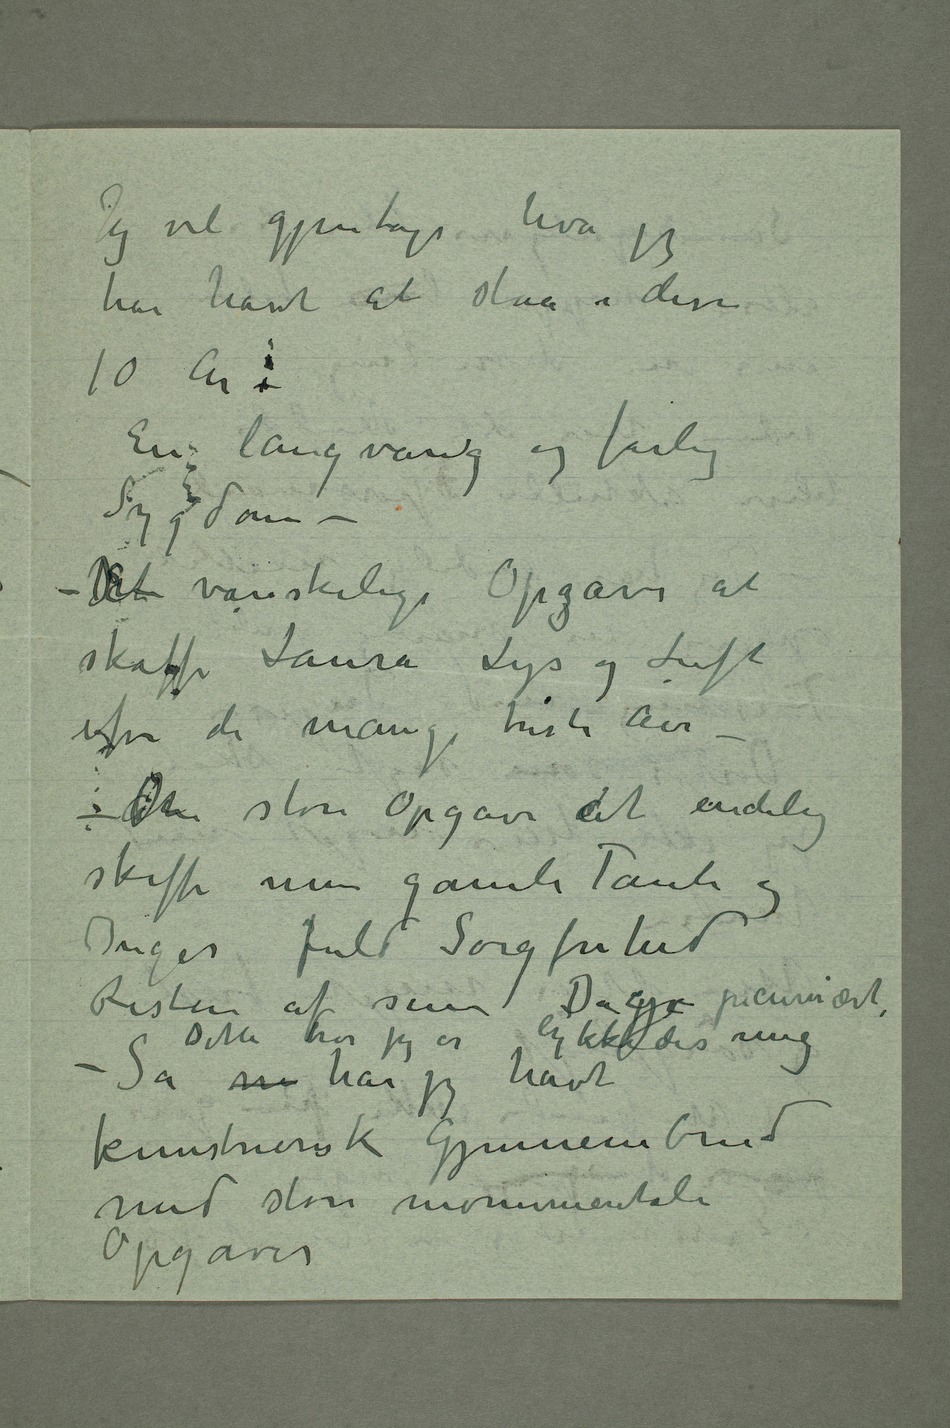 Jeg vil gjentage hva jeg
har havt at staa i disse
10 År:
En langvarig og farlig
Sygdom –
– Det vanskelige Opgave at
skaffe Laura Lys og Luft
efter de mange triste Aar –
– Den store Opgave at endelig
skaffe min gamle Tante og
Inger fuld Sorgfrihed
Resten af sine Dage pecuniært,
Dette tror jeg er lykkedes mig
– Så har jeg havt
kunstnerisk Gjennembrud
med store monumentale
Opgaver